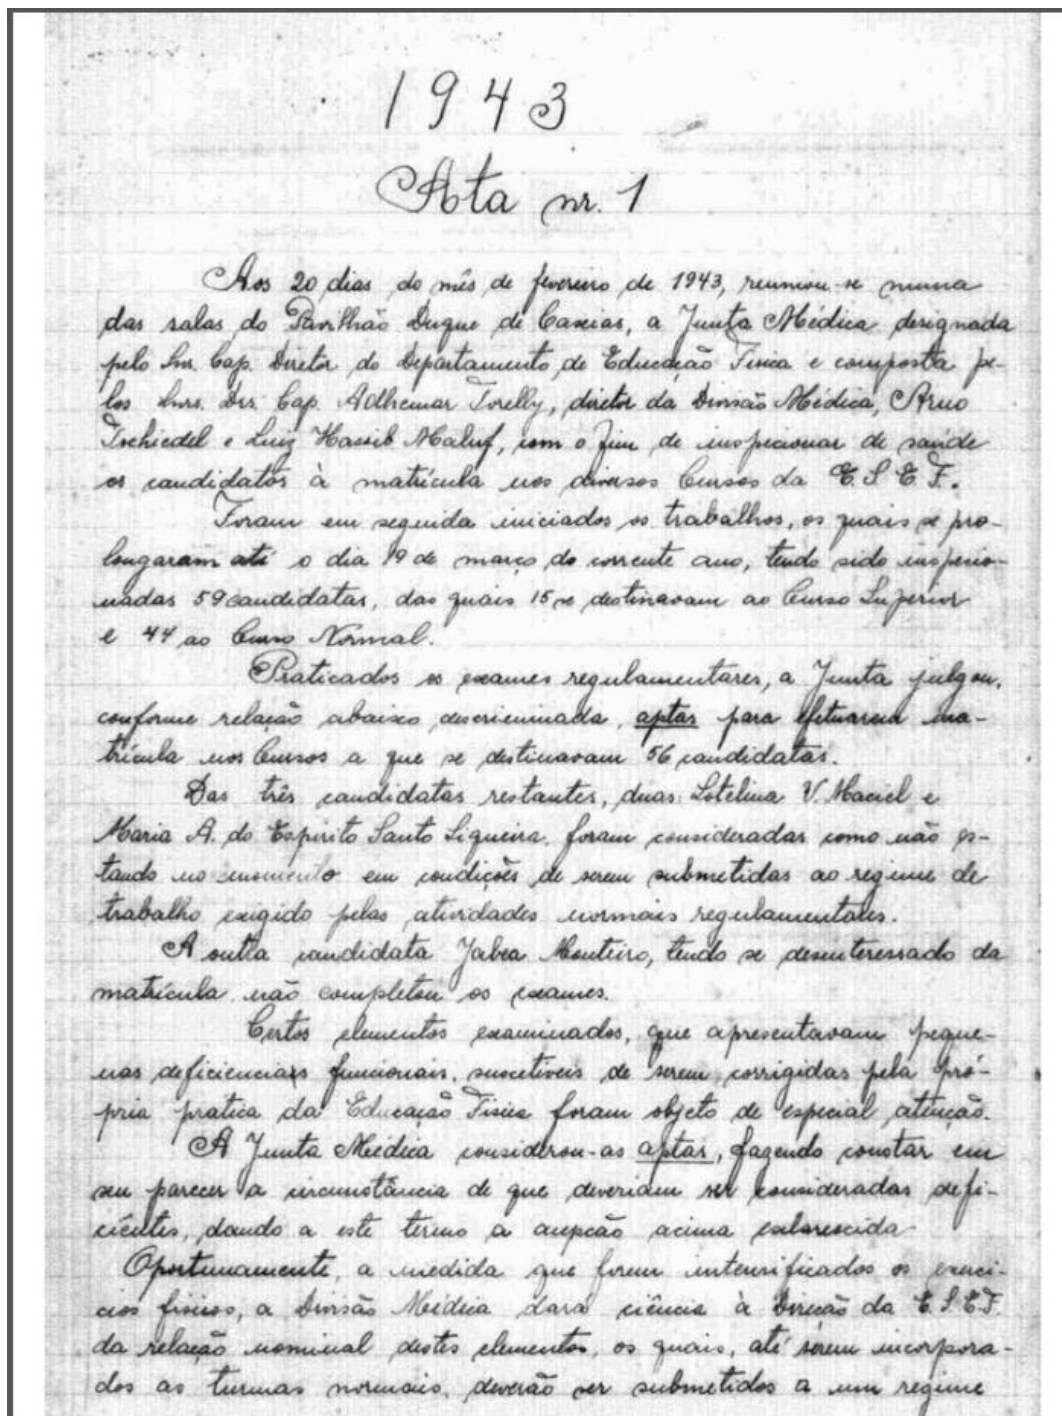 1943
Ata nr. 1
Aos 20 dias do mês de fevereiro de 1943, reuniou-se numa
das salas do Pavilhão Duque de Caxias, a Junta Médica designada
pelo Snr. Cap. Diretor do Departamento de Educação Fisica e composta pe-
los Snrs. Drs. Cap. Adhemar Torelly, diretor da Divisão Médica, Arno
Tschiedel e Luiz Hassib Maluf, com o fim de inspecionar de saúde
os candidatos à matrícula nos diversos Cursos da E. S. E. F.
Foram em seguida iniciados os trabalhos, os quais se pro-
longaram até o dia 19 de março do corrente ano, tendo sido inspecio-
nadas 59 candidatas, das quais 15 se destinavam ao Curso Superior
e 44 ao Curso Normal.
Praticados os exames regulamentares, a Junta julgou,
conforme relação abaixo descriminada, aptas para efetuarem ma-
trícula nos Cursos a que se destinavam 56 candidatas.
Das três candidatas restantes, duas: Lotelina V. Maciel e
Maria A. do Espirito Santo Siqueira, foram consideradas como não es-
tando no momento em condições de serem submetidas ao regime de
trabalho exigido pelas atividades normais regulamentares.
A outra candidata Jabra Monteiro, tendo se desinteressado da
matrícula não completou os exames.
Certos elementos examinados, que apresentavam peque-
nas deficiencias funcionais, suscetiveis de serem corrigidas pela pró-
pria pratica da Educação Fisica foram objeto de especial atenção.
A Junta Médica considerou-as aptas, fazendo constar em
seu parecer a circunstância de que deveriam ser consideradas defi-
cientes, dando a este termo a acepção acima esclarescida
Oportunamente, a medida que forem intensificados os exerci-
cios fisicos, a Divisão Médica dará ciência à Direção da E. S. E. F.
da relação nominal destes elementos, os quais, até serem incorpora-
dos as turmas normais, deverão ser submetidos a um regime